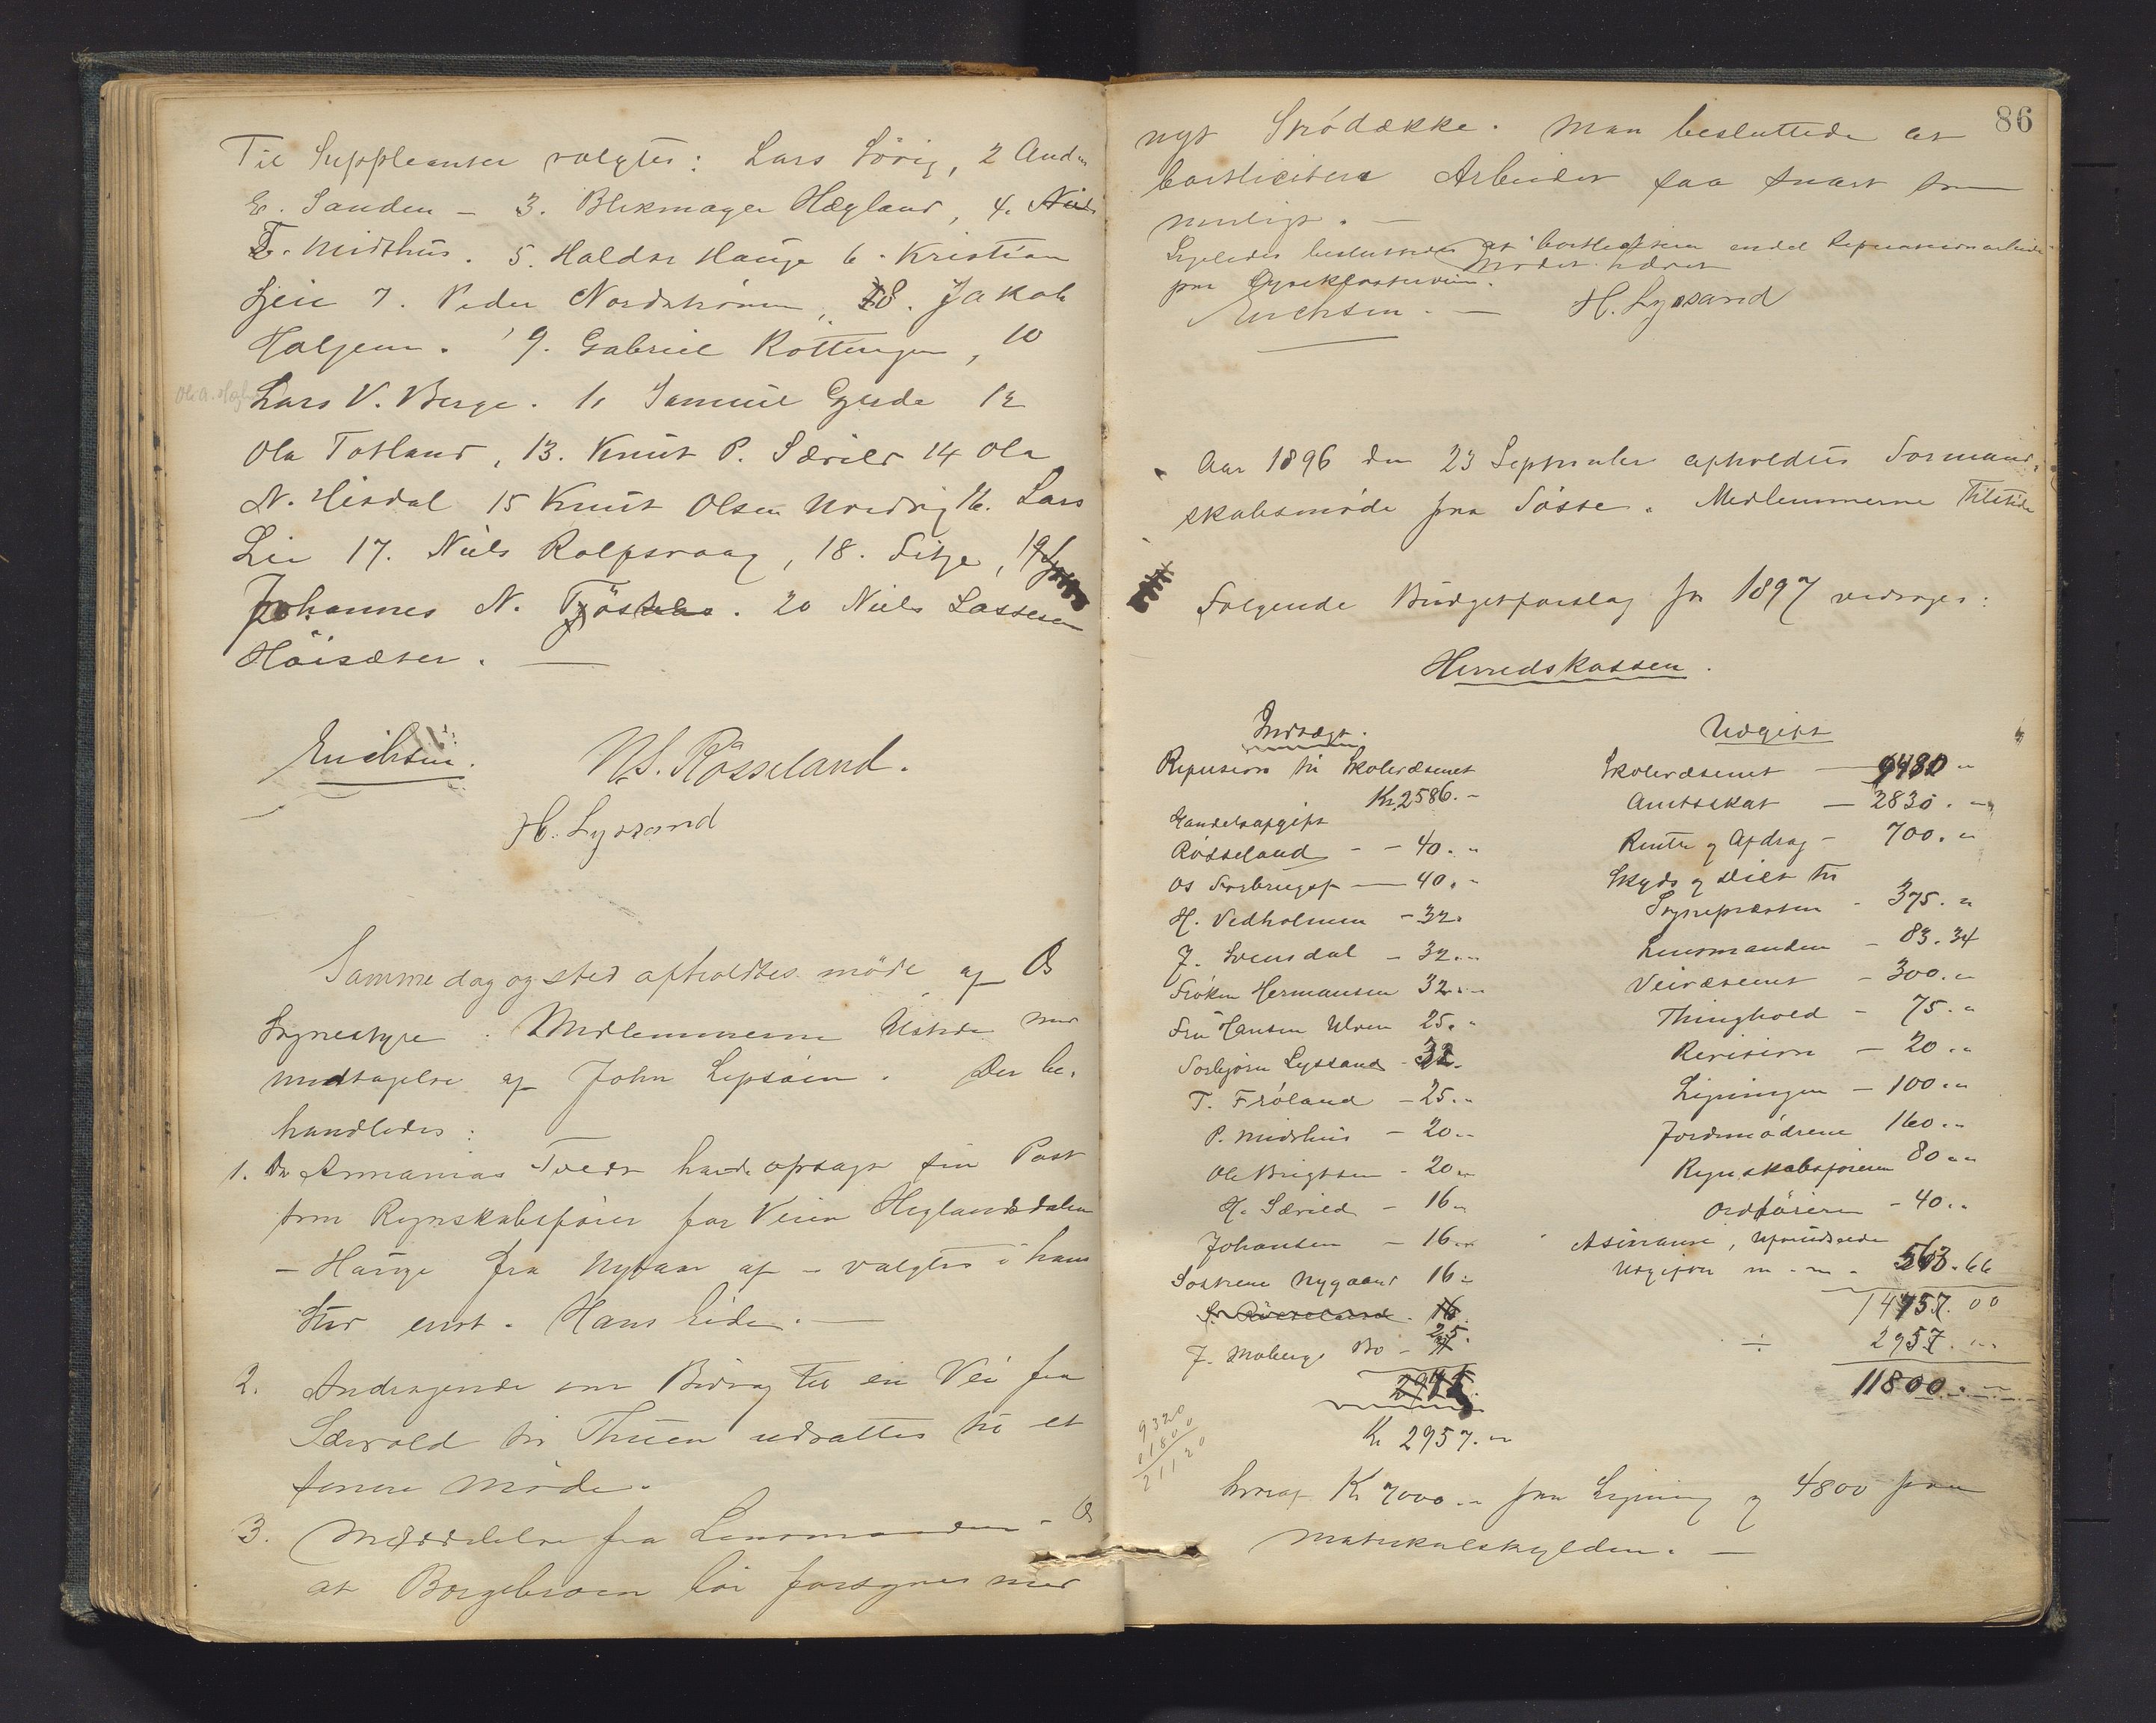 Til Suppleanter valgtes: Lars Sörvig, 2 And.
E. Sanden – 3. Blikmager Hægland, 4. Niels
T. Midthus. 5. Haldor Hauge 6. Kristian
Gjeie 7. Peder Nordström, 8. Jakob
Haljem. 9. Gabriel Rottingen, 10
Lars V. Berge. 11 Samuel Gjerde 12
Ola Totland, 13. Knut P. Særvold 14 Ola
N. Hisdal 15 Knut Olsen Nordvig 16. Lars
Lie 17. Niels Rolfsvaag, 18. Sitje, 19
Johannes N. Tjös. 20 Niels Lassesen
Höisæter. —
Erichsen. N.S. Rösseland.
H. Lyssand
Samme dag og sted afholdtes möde af Os
Sognestyre. Medlemmerne tilstede med
undtagelse af John Lepsöen. Der be-
handledes:
1. Da Annanias Tveit havde opsagt sin Post
som Regnskabsförer for Veien Heglandsdalen
– Hauge fra Nytaar af – valgtes i hans
Sted enst. Hans Eide. —
2. Andragende om Bidrag til en Vei fra
Særvold til Thuen udsattes til et
senere Möde.
3. Meddelelse fra Lensmanden i Os
at Borgebroen bör forsynes med
86
nyt Snödække. Man besluttede at
bortlicitere Arbeidet saa snart som
muligt. —
Ligeledes besluttedes at bortlicitere endel Reparationsarbeide
paa Lyseklosterveien. Mödet hævet
Erichsen. — H. Lyssand
Aar 1896 den 23 September afholdtes Formand-
skabsmöde paa Tösse. Medlemmerne Tilstede
Fölgende Budgetforslag for 1897 vedtoges:
Herredskassen.
Indtægt. Udgift
Refusion til Skolevæsenet Skolevæsenet — 9480 "
Kr. 2586. – Amtsskat — 2830. "
Handelsafgift
Rösseland – – 40. " Renter og Afdrag – 700. "
Os Forbrugsf — 40. – Skyds og Diæt til
H. Vedholmen – 32. Sognepræsten – 375. "
J. Svensdal – 32. " Lensmanden – 83.34
Fröken Hermansen 32. " Veivæsenet – 300. "
Fru Hansen Ulven 25. " Thinghold – 75. "
Torbjörn Lyssand – 32. Revision — 20. "
T. Fröland – 25. " Ligningen – 100. "
P. Midthus – 20. " Jordmödrene 160. "
Ole Brigtsen – 20 " Regnskabsföreren 80 "
H. Særvold – 16 " Ordföreren – 40. "
Johansen – 16. " Assurance, uforudseede
Sostrene Nygaard 16 – Udgifter m.m. – 563.66
S. Rösseland. 16. 14757.00
J. Moberg Bo – 25. ÷ 2957. "
Kr 2957. " 11800. –
9320
1180 0
21120
hvoraf Kr 7000. – paa Ligning og 4800 paa
Matrikulskylden. —